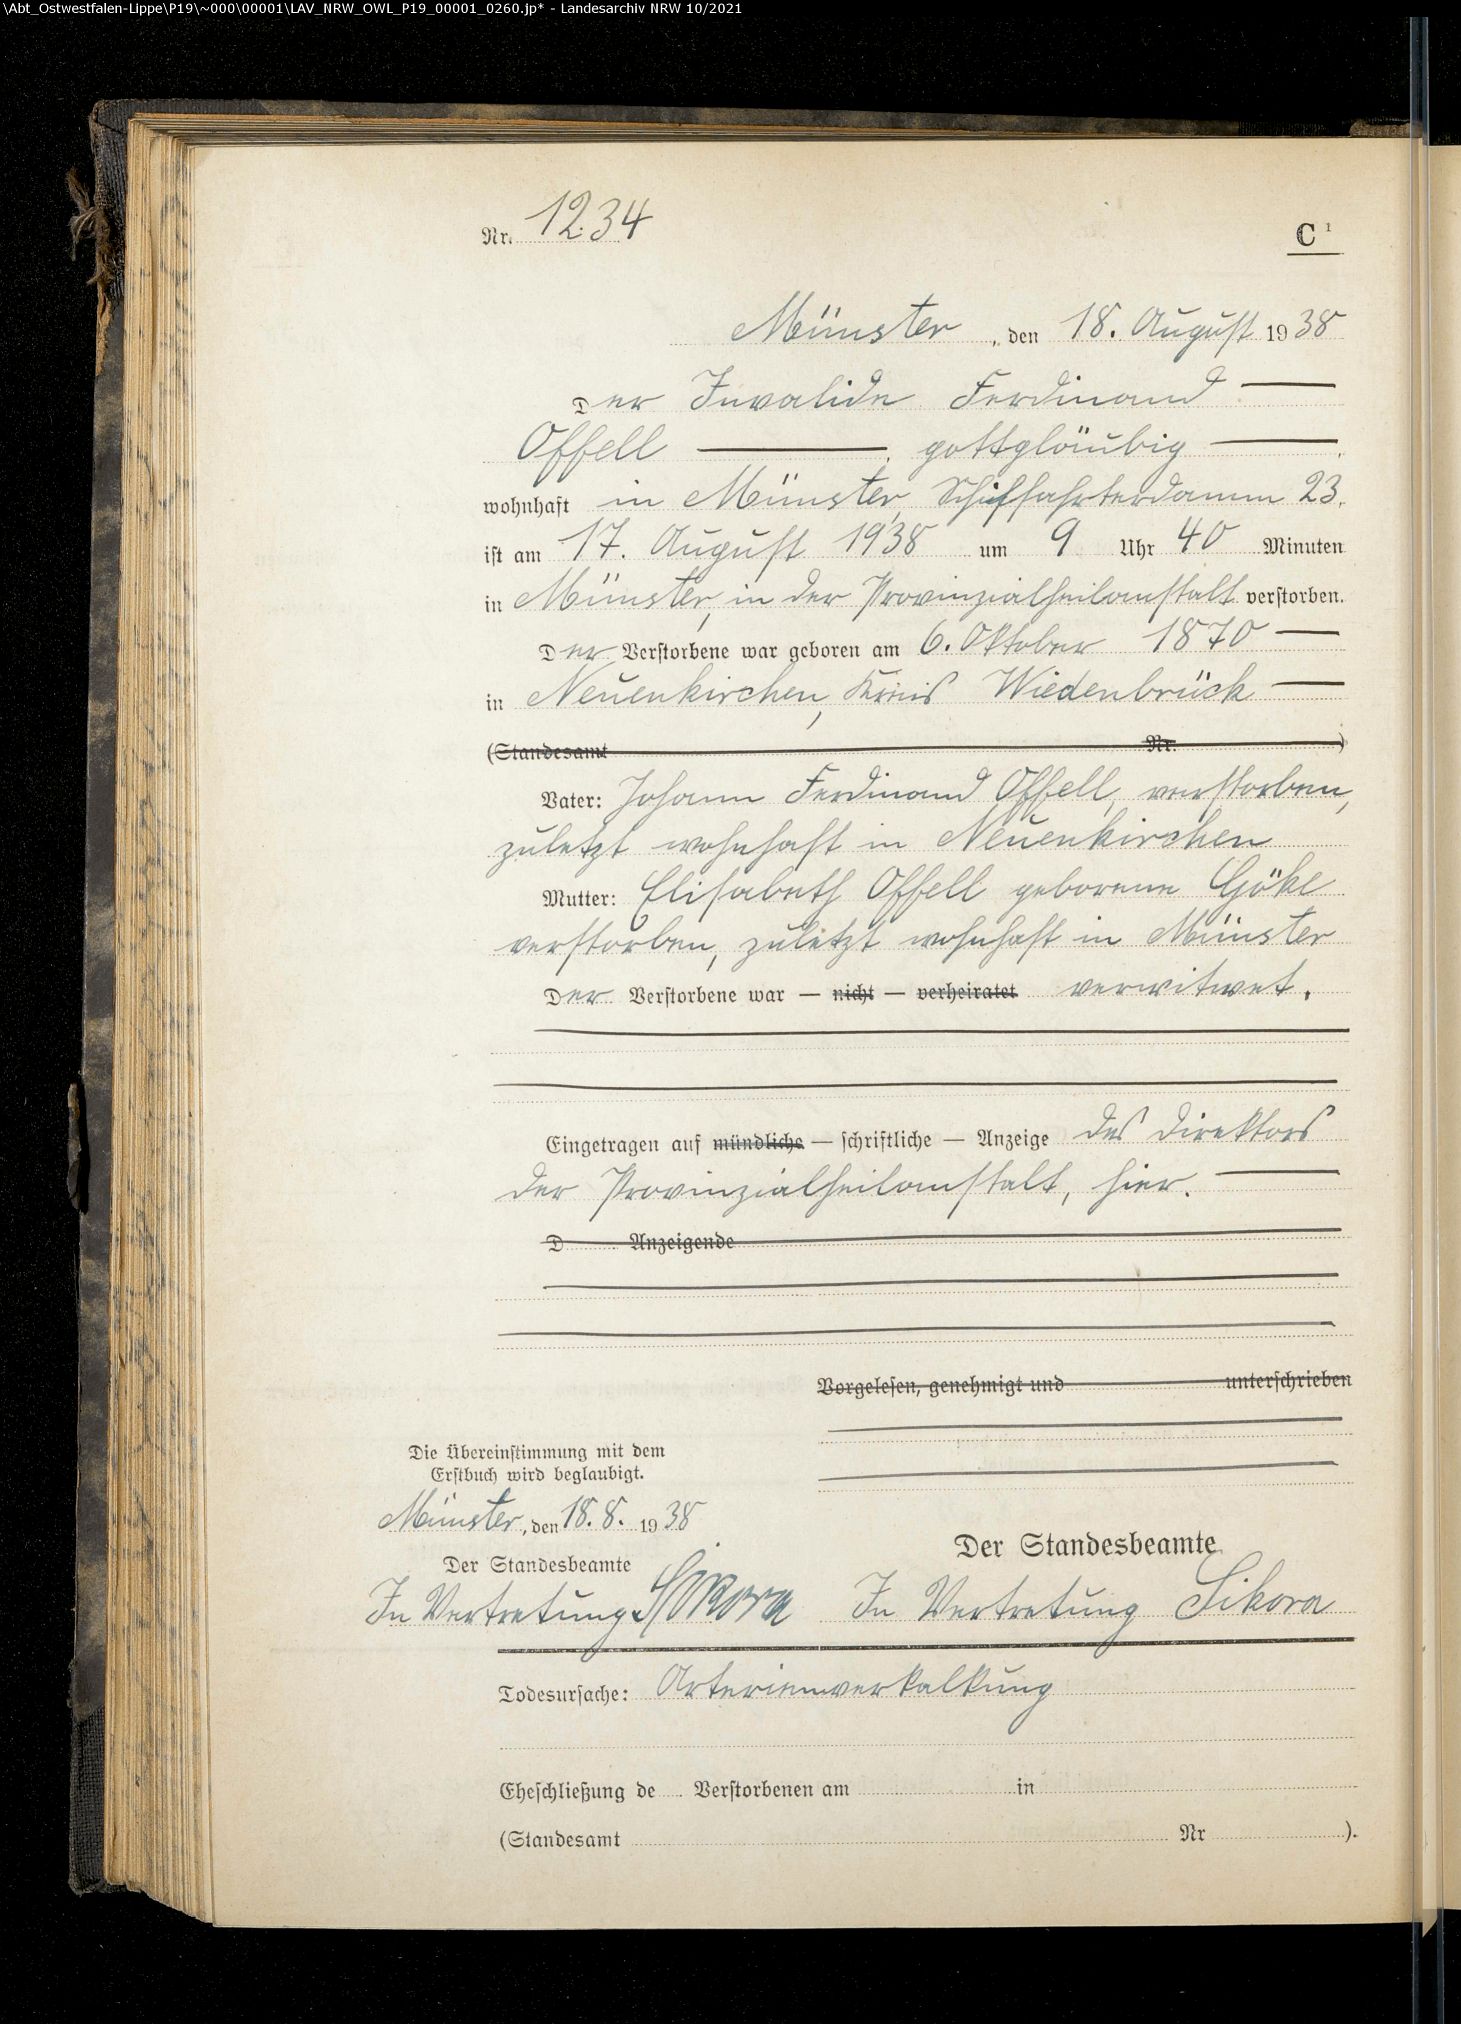 \Abt_Ostwestfalen-Lippe\P19\~000\00001\LAV_NRW_OWL_P19_00001_0260.jp* - Landesarchiv NRW 10/2021
Nr. 1234
C 1
Münster, den 18. August 1938
Der Invalide Ferdinand
Offell, gottgläubig,
wohnhaft in Münster, Schiffahrterdamm 23,
ist am 17. August 1938 um 9 Uhr 40 Minuten
in Münster, in der Provinzialheilanstalt verstorben.
Der Verstorbene war geboren am 6. Oktober 1870
in Neuenkirchen, Kreis Wiedenbrück
(Standesamt Nr. )
Vater: Johann Ferdinand Offell, verstorben,
zuletzt wohnhaft in Neuenkirchen
Mutter: Elisabeth Offell geborene Göke
verstorben, zuletzt wohnhaft in Münster
Der Verstorbene war — nicht — verheiratet verwitwet.
Eingetragen auf mündliche — schriftliche — Anzeige des Direktors
der Provinzialheilanstalt, hier.
D Anzeigende
Vorgelesen, genehmigt und unterschrieben
Die Übereinstimmung mit dem
Erstbuch wird beglaubigt.
Münster, den 18. 8. 1938
Der Standesbeamte
In Vertretung Sikora
Der Standesbeamte
In Vertretung Sikora
Todesursache: Arterienverkalkung
Eheschließung de Verstorbenen am in
(Standesamt Nr ).